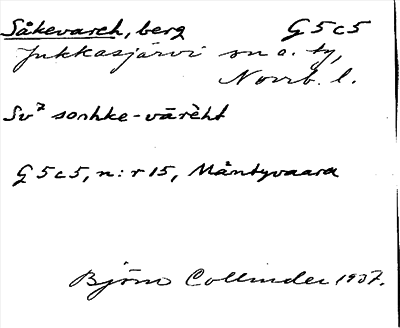 Såkevarch, berg G5c5
Jukkasjärvi sn o. tg,
Norrb. l.
Sv² sonhke-vārèht
G5c5, n:r 15, Mäntyvaara
Björn Collinder 1937.